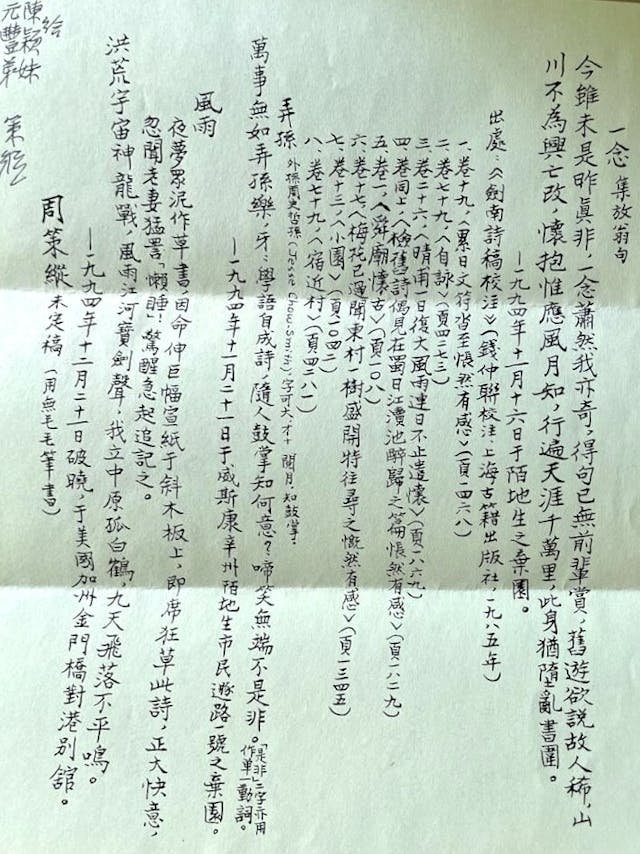 一念 集放翁句
今雖未是昨真非，一念蕭然我亦奇，得句已無前輩賞，舊遊欲說故人稀，山
川不為興亡改，懷抱惟應風月知，行遍天涯千萬里，此身猶墮亂書圍。
—一九九四年十一月十六日于陌地生之棄園。
出處：《劍南詩稿校注》（錢仲聯校注·上海古籍出版社，一九八五年）
一、卷十九，〈累日文符沓至悵然有感〉（頁一四六八）
二、卷七十九，〈自詠〉（頁四二七三）
三、卷二十六，〈晴甫一日復大風雨連日不止遣懷〉（頁一八六九）
四、卷同上，〈檢舊詩偶見在蜀日江瀆池醉歸之篇悵然有感〉（頁一八二九）
五、卷一，〈舜廟懷古〉（頁一〇八）
六、卷十七〈梅花已過聞東村一樹盛開特往尋之慨然有感〉（頁一三四五）
七、卷十三，〈小園〉（頁一〇四二）
八、卷七十九，〈宿近村〉（頁四二八一）
弄孫 外孫周史哲孫（Jesse Chow-Smith），字可大，才十閱月，知鼓掌。
萬事無如弄孫樂，牙：學語自成詩，隨人鼓掌知何意？啼笑無端不是非。「是非」二字亦用作單一動詞。
—一九九四年十一月二十一日于威斯康辛州陌地生市民遯路一號之棄園。
風雨
夜夢眾泥作草書，因命伸巨幅宣紙于斜木板上，即席狂草此詩，正大快意，
忽聞老妻猛詈：「懶睡！」驚醒急起追記之。
洪荒宇宙神龍戰，風雨江河寶劍聲，我立中原孤白鶴，九天飛落不平鳴。
—一九九四年十二月二十一日破曉，于美國加洲金門橋對港別舘。
周策縱未定稿（用無毛毛筆書）
給
陳穎妹
元豐弟
策縱